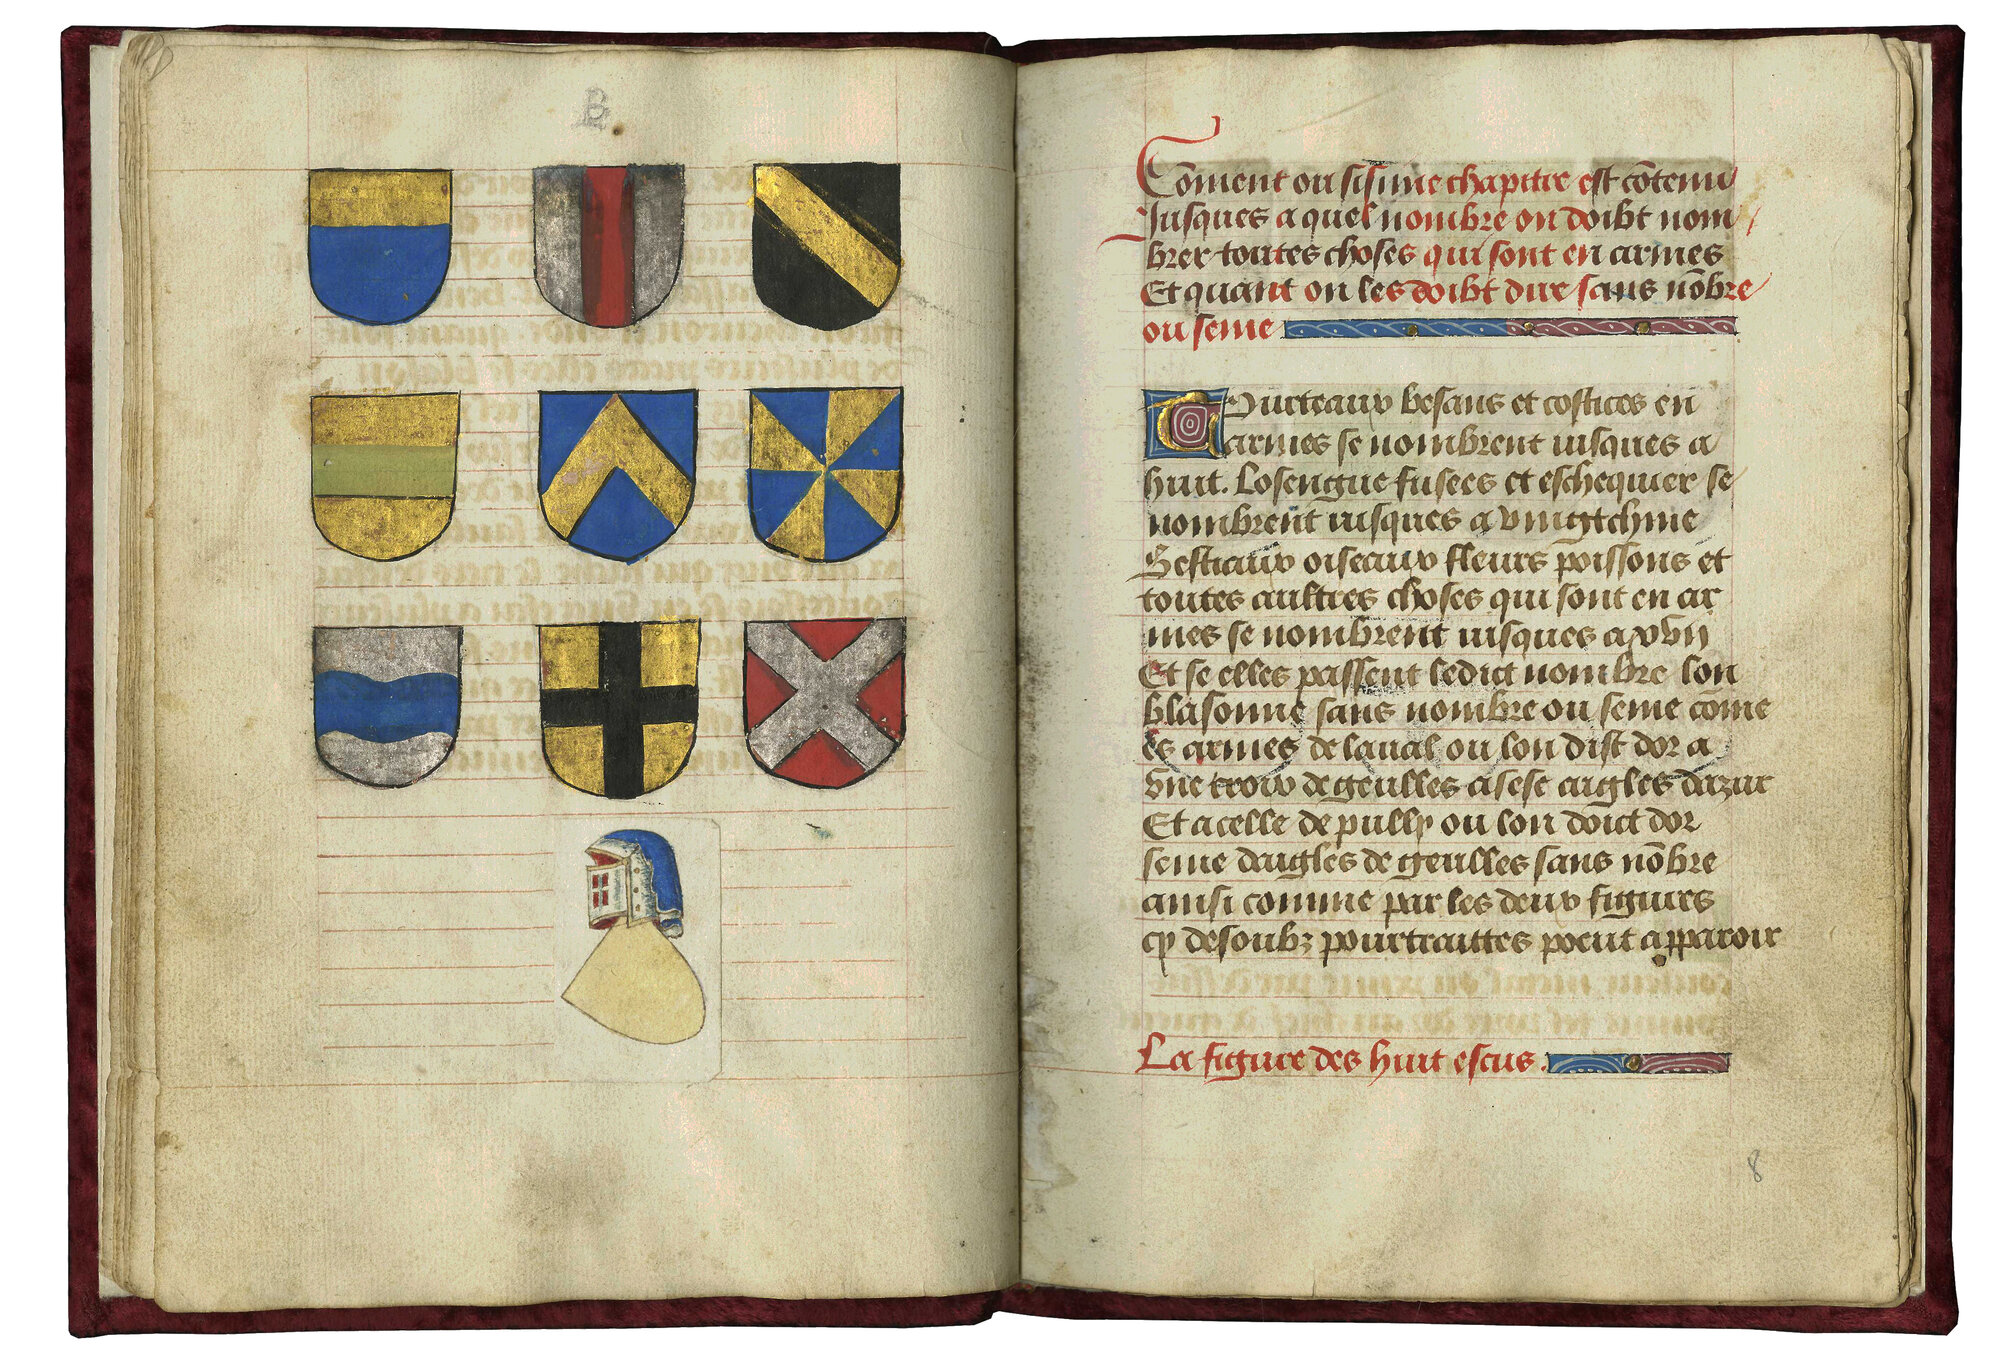 B
Coment ou sisime chapitre est cōtenu
Jusques a quel nombre on doibt nom
brer toutes choses qui sont en armes
Et quant on les doibt dire sans nōbre
ou seme
Tourteaux besans et cotices en
armes se nombrent iusques a
huit. Losengue fusees et eschequier se
nombrent iusques a vingtchinc
Bestiaux oiseaux fleurs poissons et
toutes aultres choses qui sont en ar
mes se nombrent iusques a xvij
Et se elles passent ledict nombre lon
blasonne sans nombre ou seme cōme
es armes de laval ou lon dist dor a
vne croix de geulles a sese aigles dazur
Et a celle de pully ou lon doict dor
seme daigles de geulles sans nōbre
ainsi comme par les deux figures
cy desoubz pourtraittes poeut apparoir
La figure des huit escus.
8